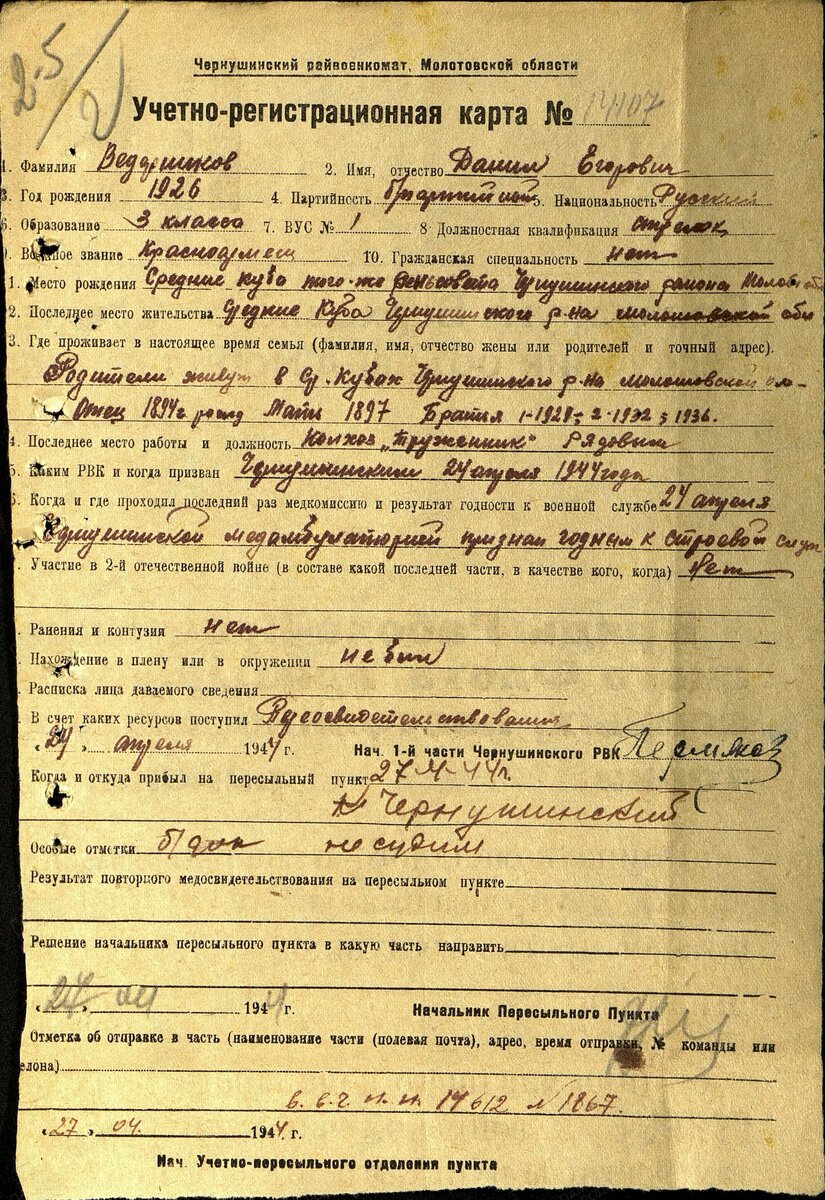 25/2
Чернушинский райвоенкомат, Молотовской области
Учетно-регистрационная карта №
1. Фамилия Ведерников 2. Имя, отчество Данил Егорович
3. Год рождения 1926 4. Партийность 5. Национальность Русский
6. Образование 3 класса 7. ВУС № 1 8 Должностная квалификация стрелок
Военное звание Красноармеец 10. Гражданская специальность нет
1. Место рождения Средние Куба того-же Чернушинского района
2. Последнее место жительства Средние Куба Чернушинского р-на молотовской обл
3. Где проживает в настоящее время семья (фамилия, имя, отчество жены или родителей и точный адрес).
Родители живут в Ср. Кубах Чернушинского р-на молотовской
Отец 1894г рожд Мать 1897 Братья 1-1928; 2-1932 3 1936.
4. Последнее место работы и должность Колхоз „Труженник" Рядовым
5. Каким РВК и когда призван Чернушинским 24 апреля 1944 года
6. Когда и где проходил последний раз медкомиссию и результат годности к военной службе 24 апреля
Чернушинской медамбулаторией признан годным к строевой
. Участие в 2-й отечественной войне (в составе какой последней части, в качестве кого, когда) Нет
. Ранения и контузии нет
. Нахождение в плену или в окружении не был
. Расписка лица даваемого сведения
. В счет каких ресурсов поступил
„24„ апреля 1944 г. Нач. 1-й части Чернушинского РВК
Когда и откуда прибыл на пересыльный пункт 27-4-44г.
Чернушинский
Особые отметки б/док не судим
Результат повторного медосвидетельствования на пересыльном пункте
Решение начальника пересыльного пункта в какую часть направить
1944 г. Начальник Пересыльного Пункта
Отметка об отправке в часть (наименование части (полевая почта), адрес, время отправки, № команды или
елона)
14612 №1867.
„27„ 04. 1944 г.
Нач. Учетно-пересыльного отделения пункта